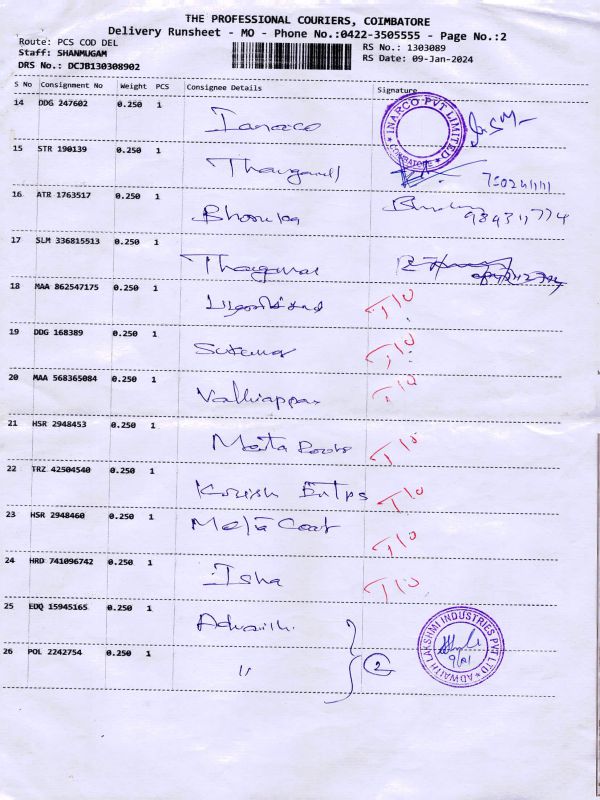 THE PROFESSIONAL COURIERS, COIMBATORE
Delivery Runsheet - MO - Phone No.:0422-3505555 - Page No.:2
Route: PCS COD DEL
RS No.: 1303089
Staff: SHANMUGAM
RS Date: 09-Jan-2024
DRS No.: DCJB130308902
S No Consignment No Weight PCS Consignee Details Signature
14 DDG 247602 0.250 1 Inarco
INARCO PVT LIMITED COIMBATORE
15 STR 190139 0.250 1
16 ATR 1763517 0.250 1 Bhoruka
17 SLM 336815513 0.250 1
18 MAA 862547175 0.250 1 T/O
19 DDG 168389 0.250 1 T/O
20 MAA 568365084 0.250 1 Valliappan T/O
21 HSR 2948453 0.250 1 T/O
22 TRZ 42504540 0.250 1 T/O
23 HSR 2948460 0.250 1 T/O
24 HRD 741096742 0.250 1 Isha T/O
25 EDQ 15945165 0.250 1 Adwaith
ADWAITH LAKSHMI INDUSTRIES PVT LTD
26 POL 2242754 0.250 1 " 2